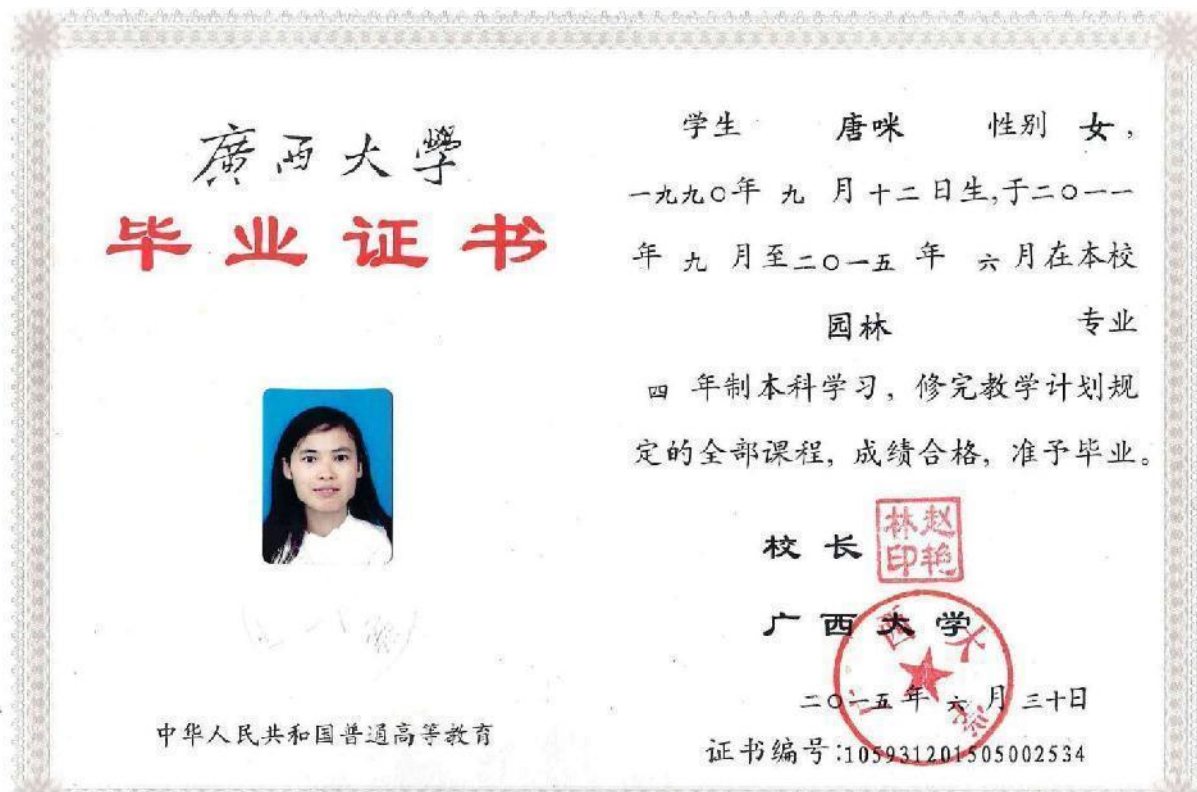 廣西大學
毕业证书
中华人民共和国普通高等教育
学生 唐咪 性别 女，
一九九〇年 九 月 十二 日生,于二〇一一
年 九 月至二〇一五 年 六 月在本校
园林 专业
四 年制本科学习，修完教学计划规
定的全部课程，成绩合格，准予毕业。
校长
赵艳林印
广西大学
广西大学
二〇一五 年 六 月 三十日
证书编号:105931201505002534